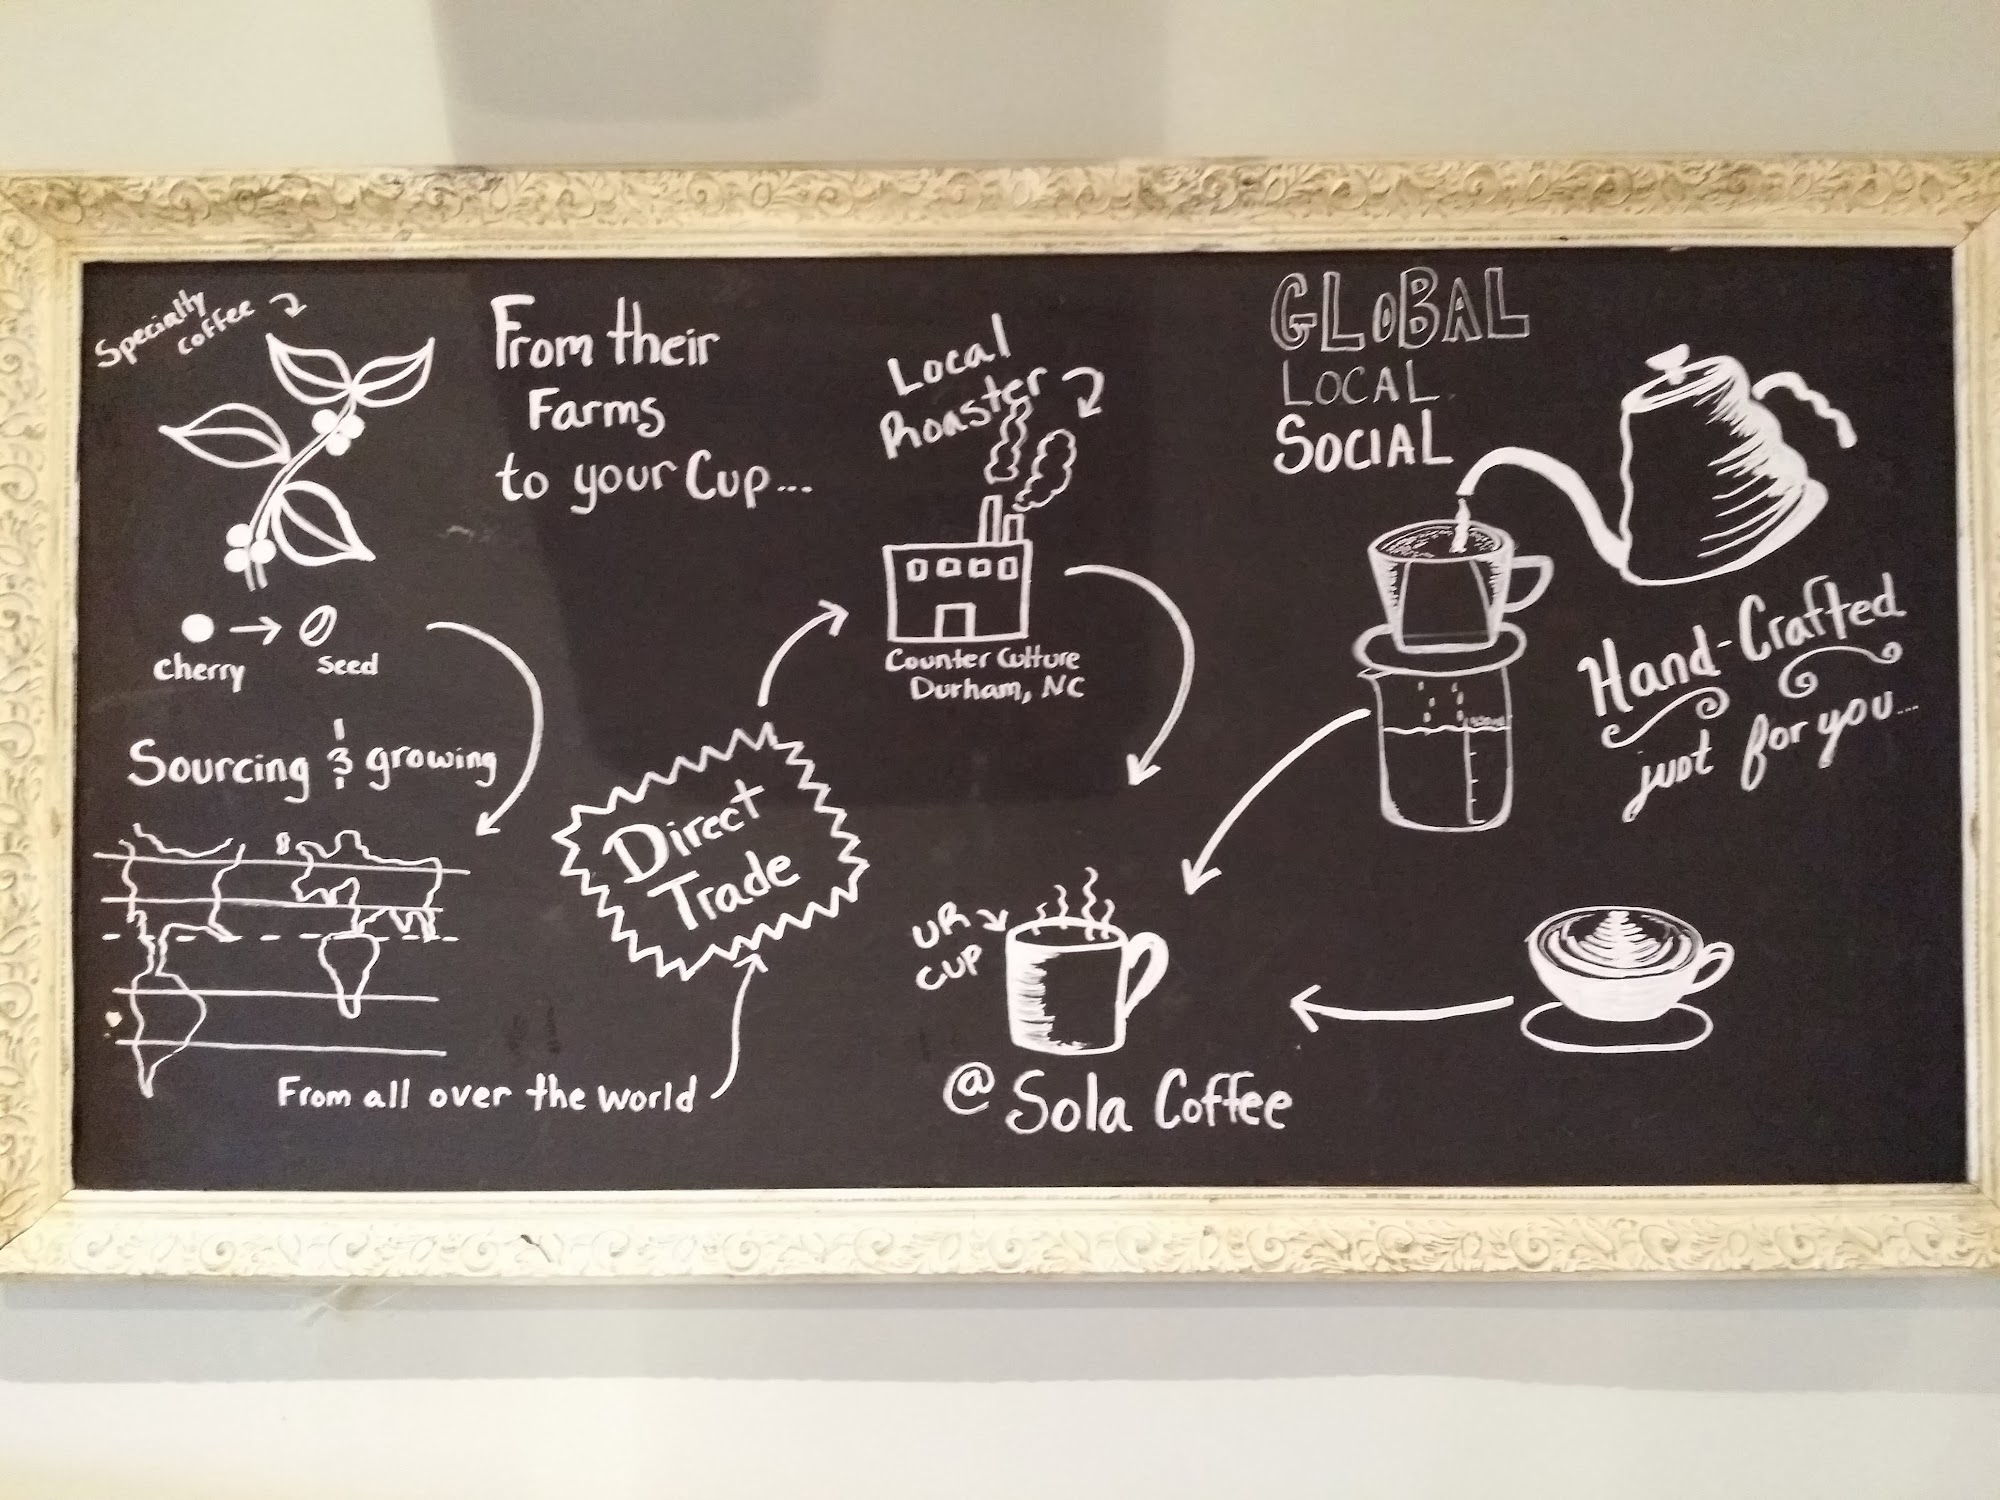 Specialty
coffee
From their
Farms
to your Cup...
Local
Roaster
GLOBAL
LOCAL
SOCIAL
Cherry
Seed
Sourcing & growing
Counter Culture
Durham, NC
Hand-Crafted
just for you....
Direct
Trade
UR
CUP
From all over the world
@ Sola Coffee